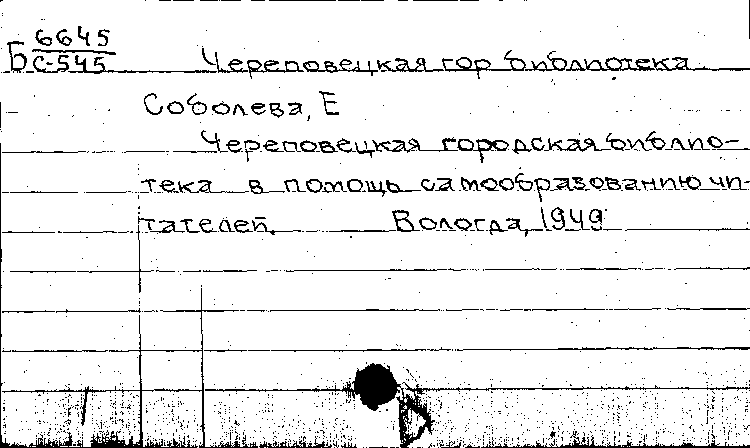 6645
Б С-545 Черeповецкая гор библиотека
Соболева, Е
Череповецкая городская библио-
тека в помощь самообразованию чи-
тателей. Вологда, 1949